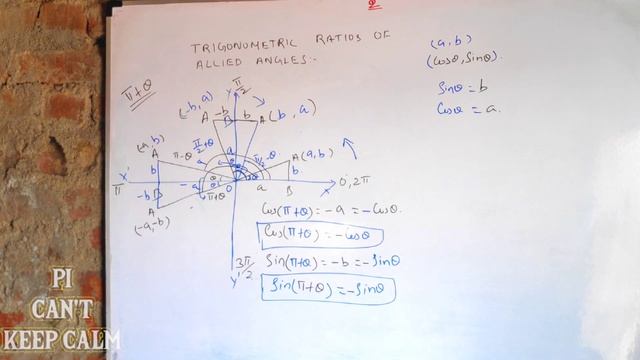 TRIGONOMETRIC RATIOS OF
ALLIED ANGLES:-
(a, b)
(Cosθ, Sinθ)
Sinθ = b
Cosθ = a
π+θ
Y π/2
(-b, a)
A -b B b A (b, a)
(-a, b)
A
π/2+θ
π/2-θ
A (a, b)
π-θ
a
b
b
X'
π
-a
θ
θ
O
a
B
X
0, 2π
-b
B
π+θ
A
(-a, -b)
Cos(π+θ) = -a = -Cosθ.
Cos(π+θ) = -Cosθ
3π/2
Y'
Sin(π+θ) = -b = -Sinθ
Sin(π+θ) = -Sinθ
PI
CAN'T
KEEP CALM